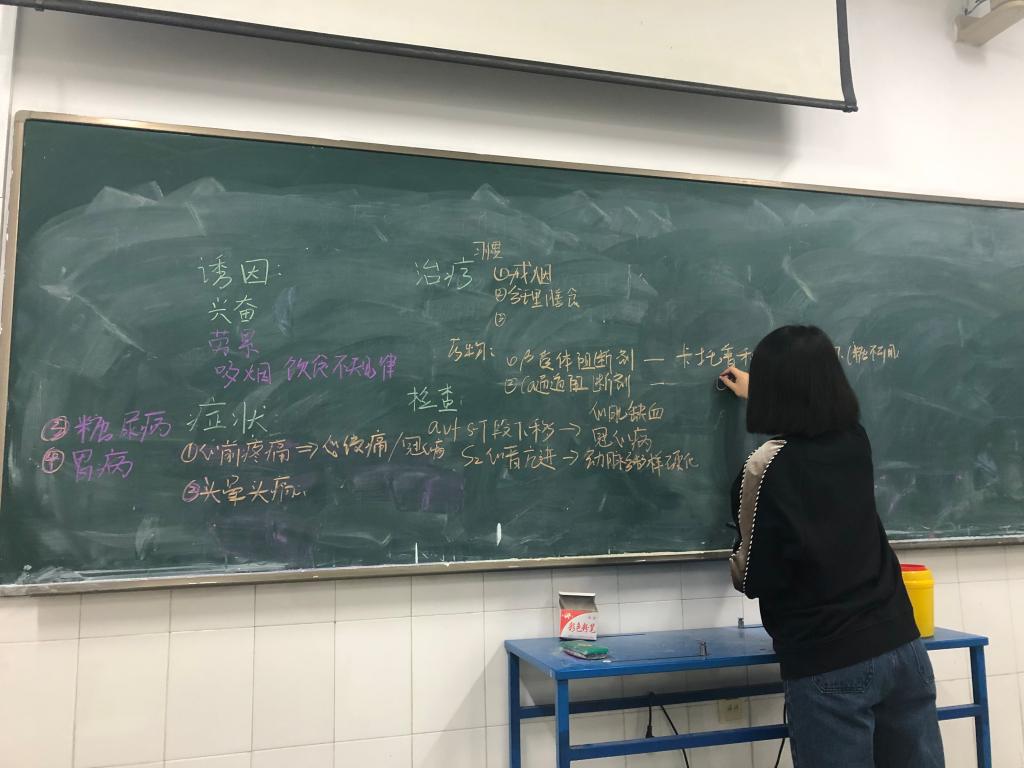 诱因:
兴奋
劳累
吸烟 饮食不规律
症状:
①心前疼痛⇒心绞痛/冠心病
②头晕头痛
③糖尿病
④胃病
治疗
习惯
①戒烟
②合理膳食
③
药物:
①β受体阻断剂 — 卡托普利
②Ca通道阻断剂 —
检查:
avf ST段下移→ 心肌缺血
冠心病
S2心音亢进→动脉粥样硬化
彩色粉笔